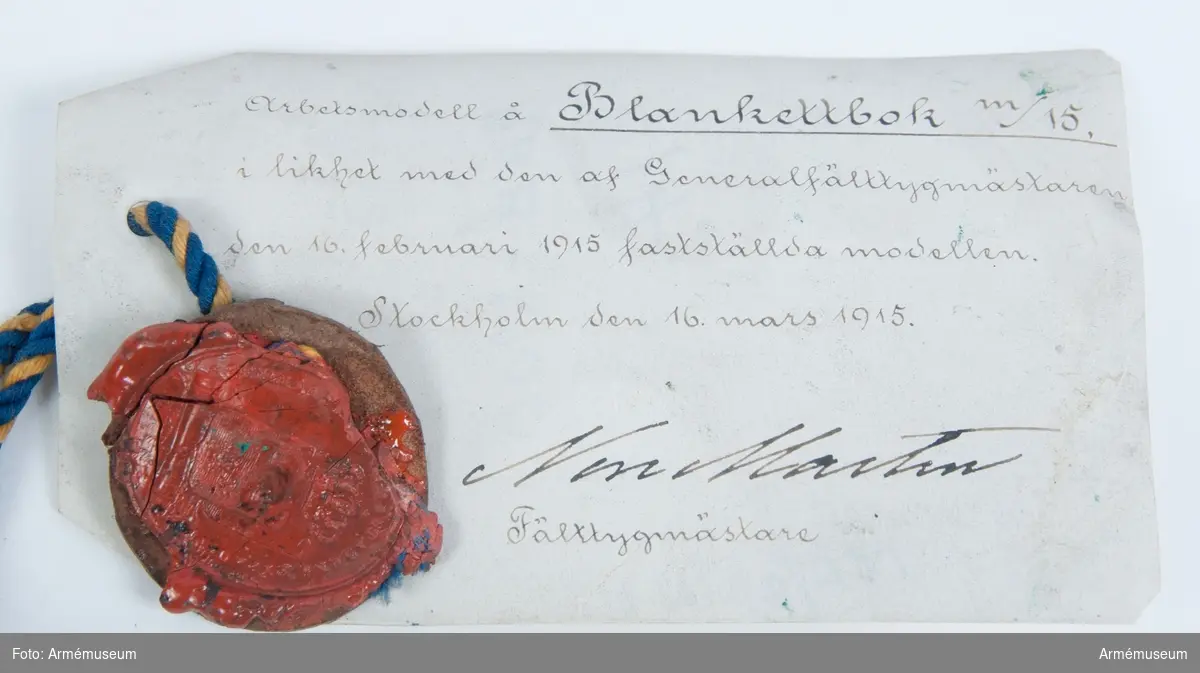 Arbetsmodell å Blankettbok m/15.
i likhet med den af Generalfälttygmästaren
den 16. februari 1915 fastställda modellen.
Stockholm den 16. mars 1915.
Fälttygmästare
Foto: Armémuseum
Armémuseum